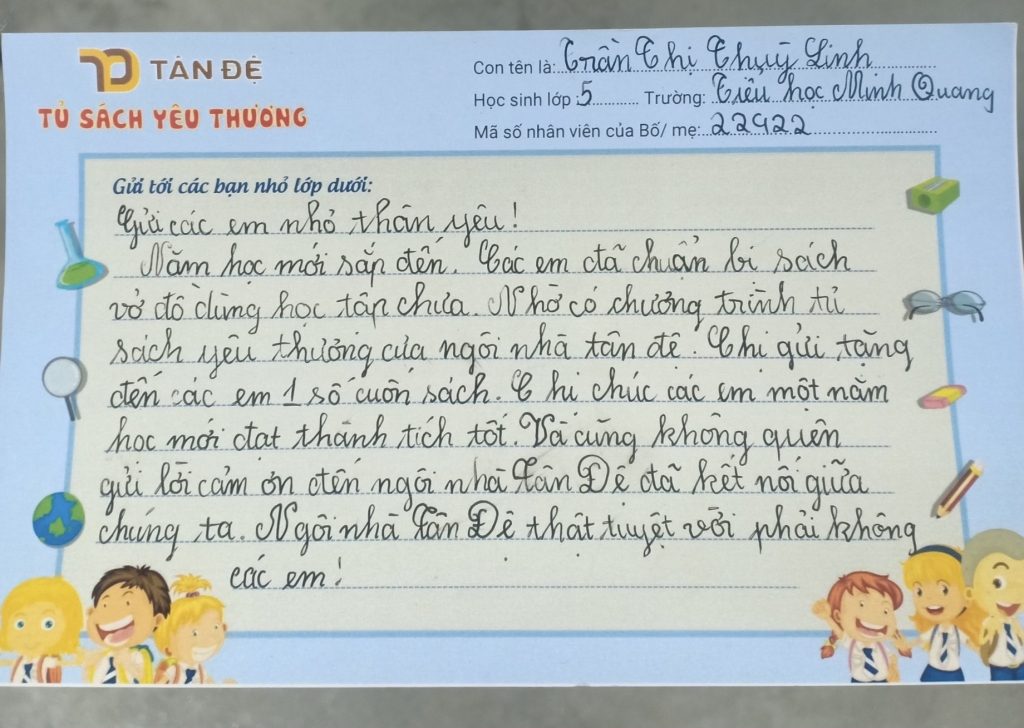 TÂN ĐỆ
TỦ SÁCH YÊU THƯƠNG
Con tên là: Trần Thị Thuỳ Linh
Học sinh lớp : 5 Trường: Tiểu học Minh Quang
Mã số nhân viên của Bố/ mẹ: 22922
Gửi tới các bạn nhỏ lớp dưới:
Gửi các em nhỏ thân yêu!
Năm học mới sắp đến. Các em đã chuẩn bị sách
vở đồ dùng học tập chưa. Nhờ có chương trình tủ
sách yêu thương của ngôi nhà tân đệ. Chị gửi tặng
đến các em 1 số cuốn sách. Chị chúc các em một năm
học mới đạt thành tích tốt. Và cũng không quên
gửi lời cảm ơn đến ngôi nhà Tân Đệ đã kết nối giữa
chúng ta. Ngôi nhà Tân Đệ thật tuyệt vời phải không
các em!